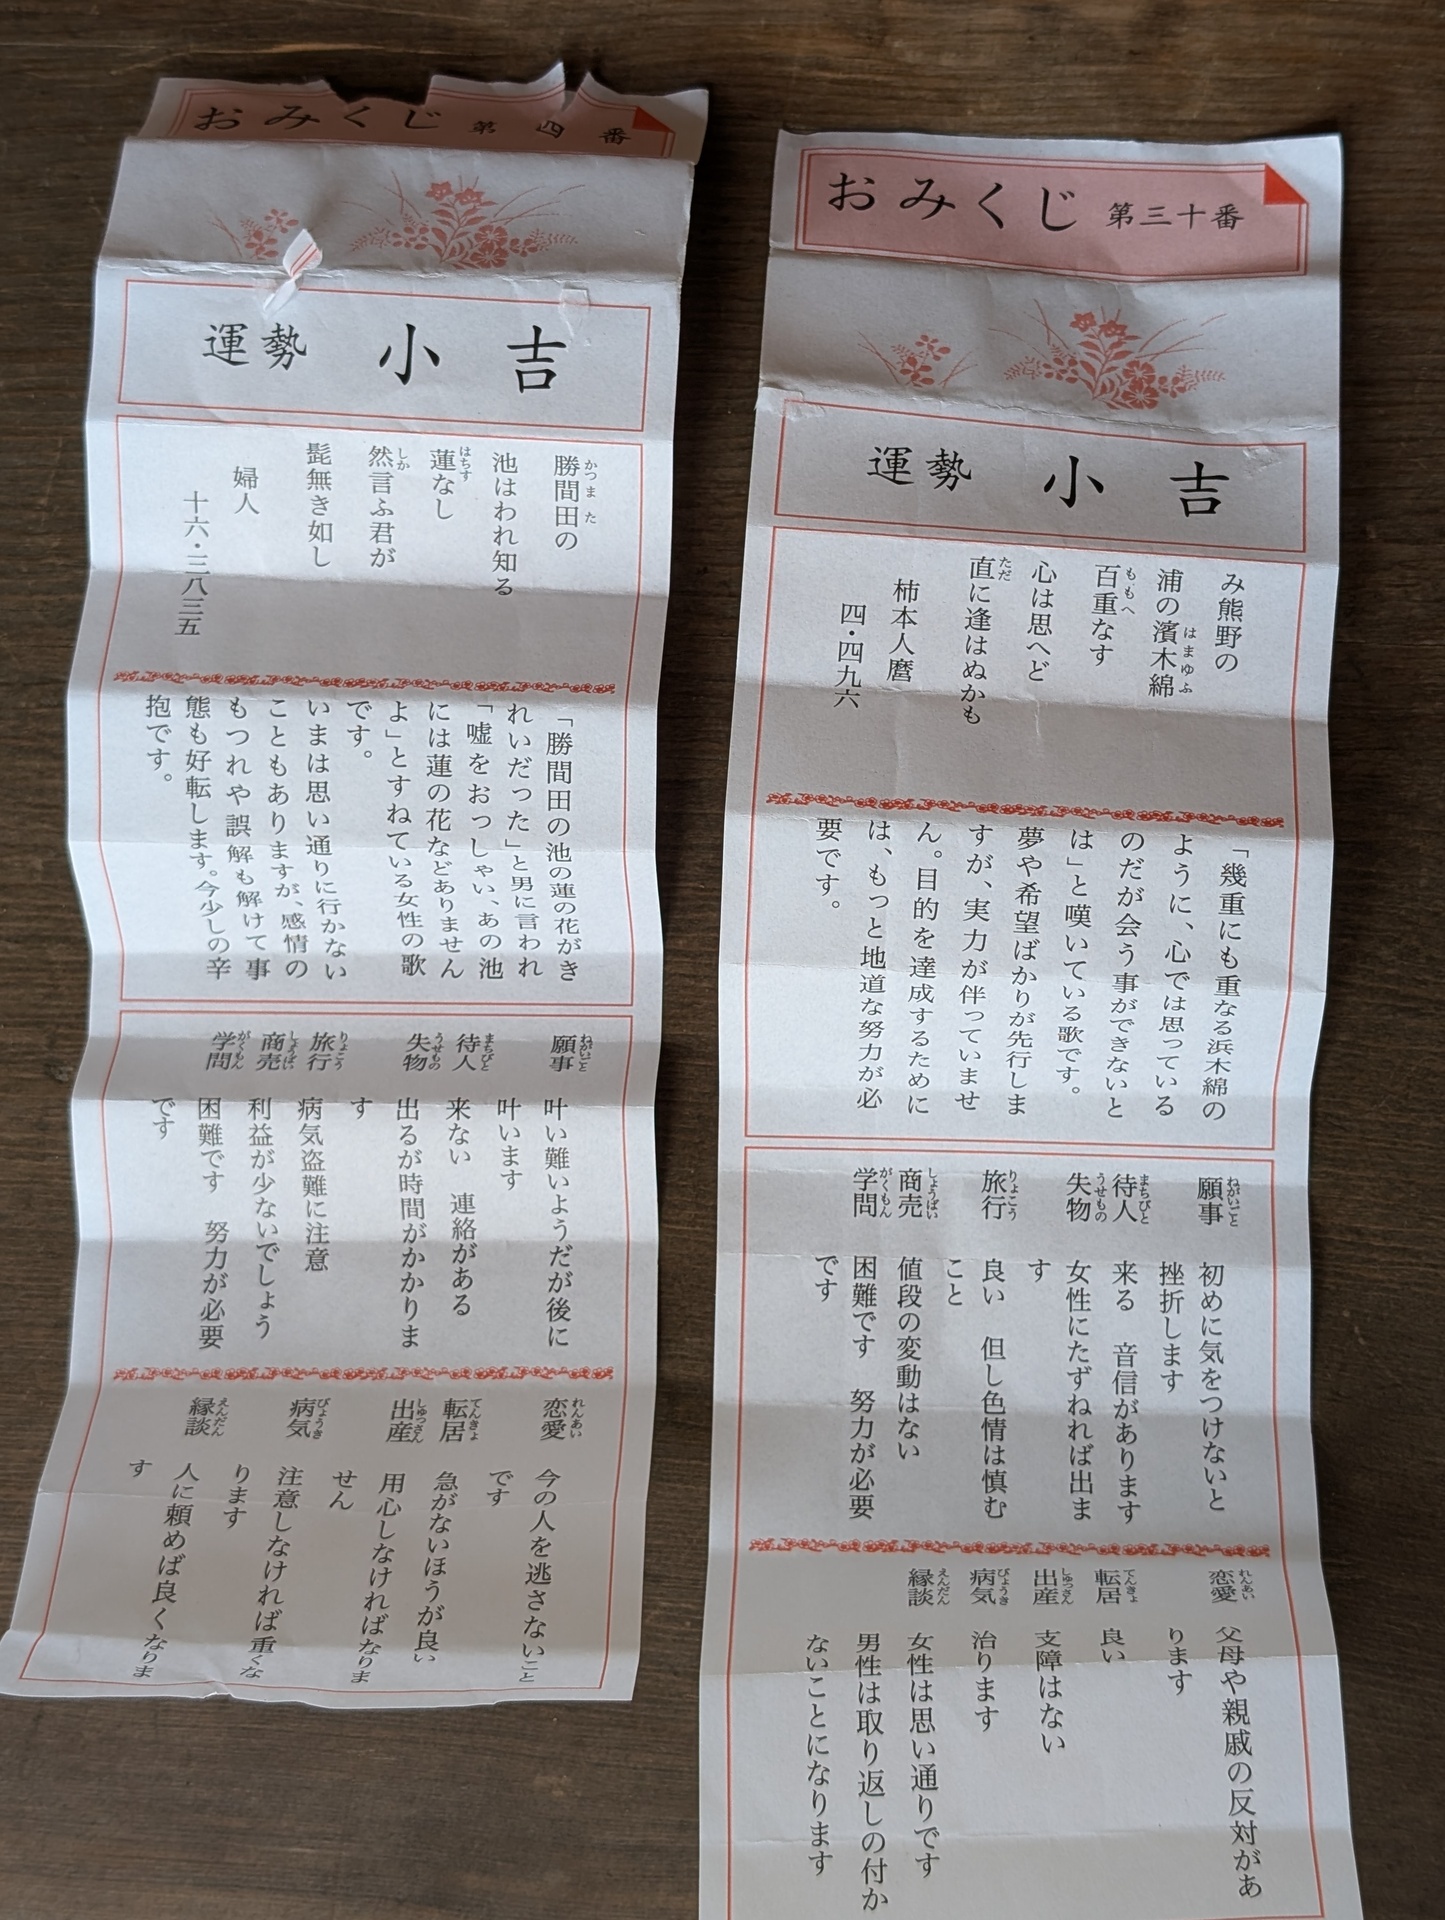 おみくじ 第四番
運勢 小吉
勝間田の
かつまた
池はわれ知る
蓮なし
はちす
然言ふ君が
しか
髭無き如し
婦人
十六・三八三五
「勝間田の池の蓮の花がき
れいだった」と男に言われ
「嘘をおっしゃい、あの池
には蓮の花などありません
よ」とすねている女性の歌
です。
いまは思い通りに行かない
こともありますが、感情の
もつれや誤解も解けて事
態も好転します。今少しの辛
抱です。
願事 叶い難いようだが後に
ねがいごと
叶います
待人 来ない 連絡がある
まちびと
失物 出るが時間がかかりま
うせもの
す
旅行 病気盗難に注意
りょこう
商売 利益が少ないでしょう
しょうばい
学問 困難です 努力が必要
がくもん
です
恋愛 今の人を逃さないこと
れんあい
です
転居 急がないほうが良い
てんきょ
出産 用心しなければなりま
しゅっさん
せん
病気 注意しなければ重くな
びょうき
ります
縁談 人に頼めば良くなりま
えんだん
す
おみくじ 第三十番
運勢 小吉
み熊野の
浦の濱木綿
はまゆふ
百重なす
ももへ
心は思へど
直に逢はぬかも
ただ
柿本人麿
四・四九六
「幾重にも重なる浜木綿の
ように、心では思っている
のだが会う事ができないと
は」と嘆いている歌です。
夢や希望ばかりが先行しま
すが、実力が伴っていませ
ん。目的を達成するために
は、もっと地道な努力が必
要です。
願事 初めに気をつけないと
ねがいごと
挫折します
待人 来る 音信があります
まちびと
失物 女性にたずねれば出ま
うせもの
す
旅行 良い 但し色情は慎む
りょこう
こと
商売 値段の変動はない
しょうばい
学問 困難です 努力が必要
がくもん
です
恋愛 父母や親戚の反対があ
れんあい
ります
転居 良い
てんきょ
出産 支障はない
しゅっさん
病気 治ります
びょうき
縁談 女性は思い通りです
えんだん
男性は取り返しの付か
ないことになります